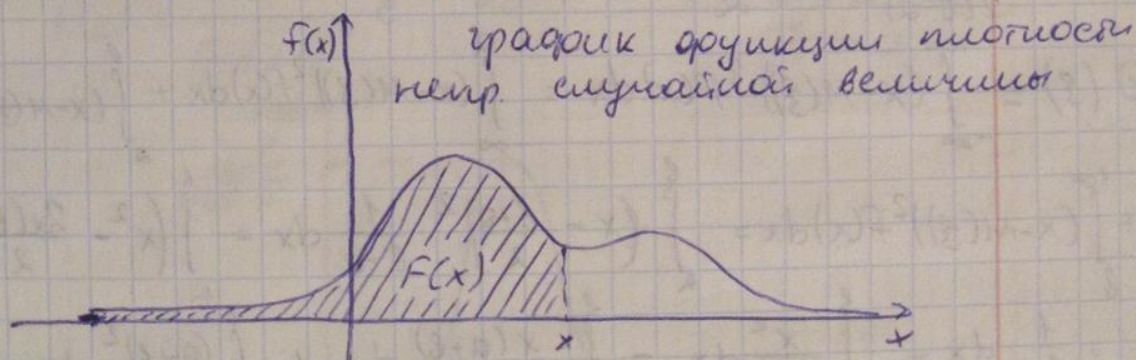 f(x) график функции плотности
непр. случайной величины
F(x)
x x